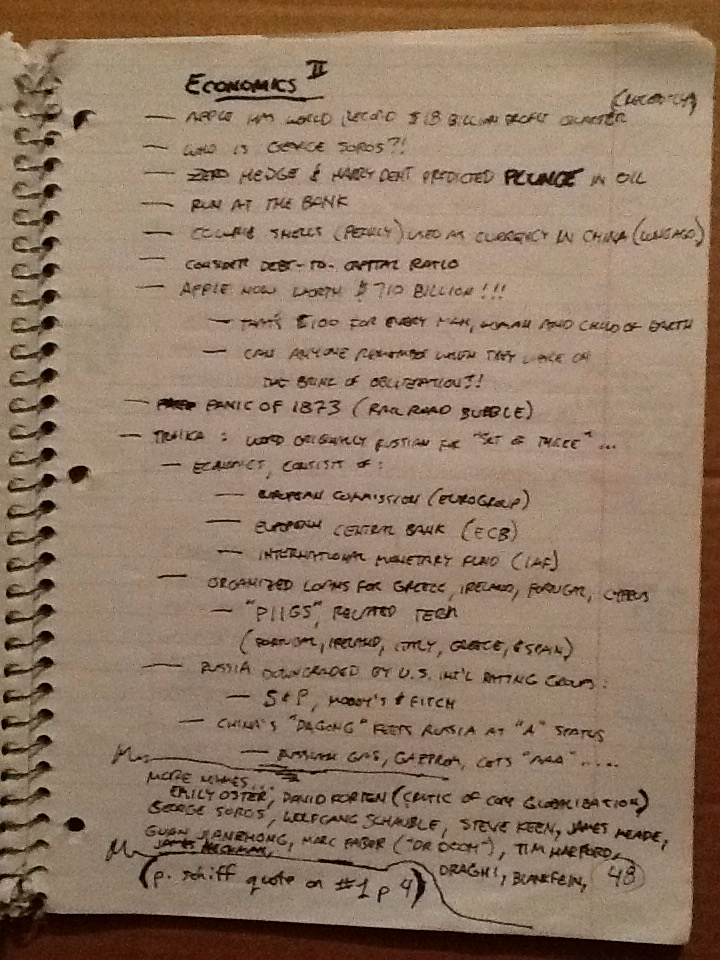 ECONOMICS II
(RECENTLY)
— APPLE HAS WORLD RECORD $18 BILLION PROFIT QUARTER
— WHO IS GEORGE SOROS?!
— ZERO HEDGE & HARRY DENT PREDICTED PLUNGE IN OIL
— RUN AT THE BANK
— COWRIE SHELLS (PEARLY) USED AS CURRENCY IN CHINA (LONG AGO)
— CONSIDER DEBT-TO-CAPITAL RATIO
— APPLE NOW WORTH $710 BILLION!!!
— THAT'S $100 FOR EVERY MAN, WOMAN AND CHILD OF EARTH
— CAN ANYONE REMEMBER WHEN THEY WERE ON
THE BRINK OF OBLITERATION?!
— PANIC OF 1873 (RAILROAD BUBBLE)
— TROIKA: WORD ORIGINALLY RUSSIAN FOR "SET OF THREE"...
— ECONOMICS, CONSISTS OF:
— EUROPEAN COMMISSION (EUROGROUP)
— EUROPEAN CENTRAL BANK (ECB)
— INTERNATIONAL MONETARY FUND (IMF)
— ORGANIZED LOANS FOR GREECE, IRELAND, PORTUGAL, CYPRUS
— "PIIGS", RELATED TERM
(PORTUGAL, IRELAND, ITALY, GREECE, & SPAIN)
— RUSSIA DOWNGRADED BY U.S. INT'L RATING GROUPS:
— S&P, MOODY'S & FITCH
— CHINA'S "DAGONG" FEELS RUSSIA AT "A" STATUS
— RUSSIAN GAS, GAZPROM, GETS "AAA".....
MORE NAMES:
EMILY OSTER, DAVID KORTEN (CRITIC OF CORP GLOBALIZATION)
GEORGE SOROS, WOLFGANG SCHAUBLE, STEVE KEEN, JAMES MEADE,
GUAN JIANZHONG, MARC FABER ("DR DOOM"), TIM HARFORD,
JAMES HECKMAN,
DRAGHI, BLANKFEIN,
48
(p. schiff quote on #1 p 4)